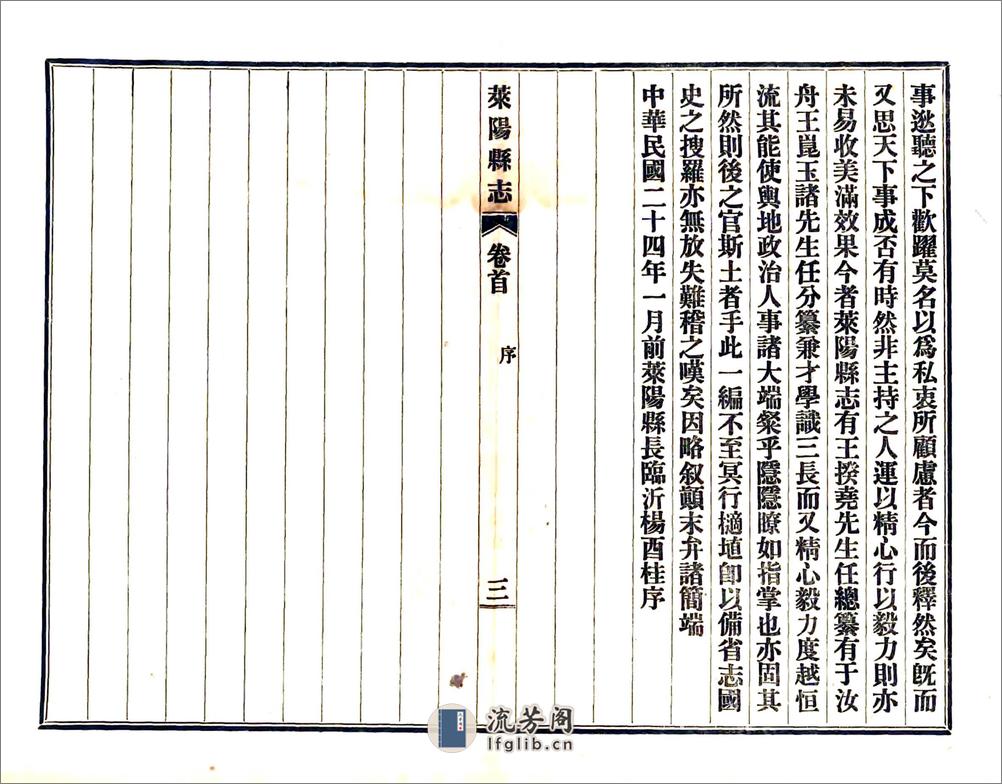 事逖聽之下歡躍莫名以爲私衷所顧慮者今而後釋然矣旣而
又思天下事成否有時然非主持之人運以精心行以毅力則亦
未易收美滿效果今者萊陽縣志有王揆堯先生任總纂有于汝
舟王崑玉諸先生任分纂兼才學識三長而又精心毅力度越恒
流其能使輿地政治人事諸大端粲乎隱隱瞭如指掌也亦固其
所然則後之官斯土者手此一編不至冥行擿埴卽以備省志國
史之搜羅亦無放失難稽之嘆矣因略叙顚末弁諸簡端
中華民國二十四年一月前萊陽縣長臨沂楊酉桂序
萊陽縣志
卷首
序
三
流芳阁
lfglib.cn